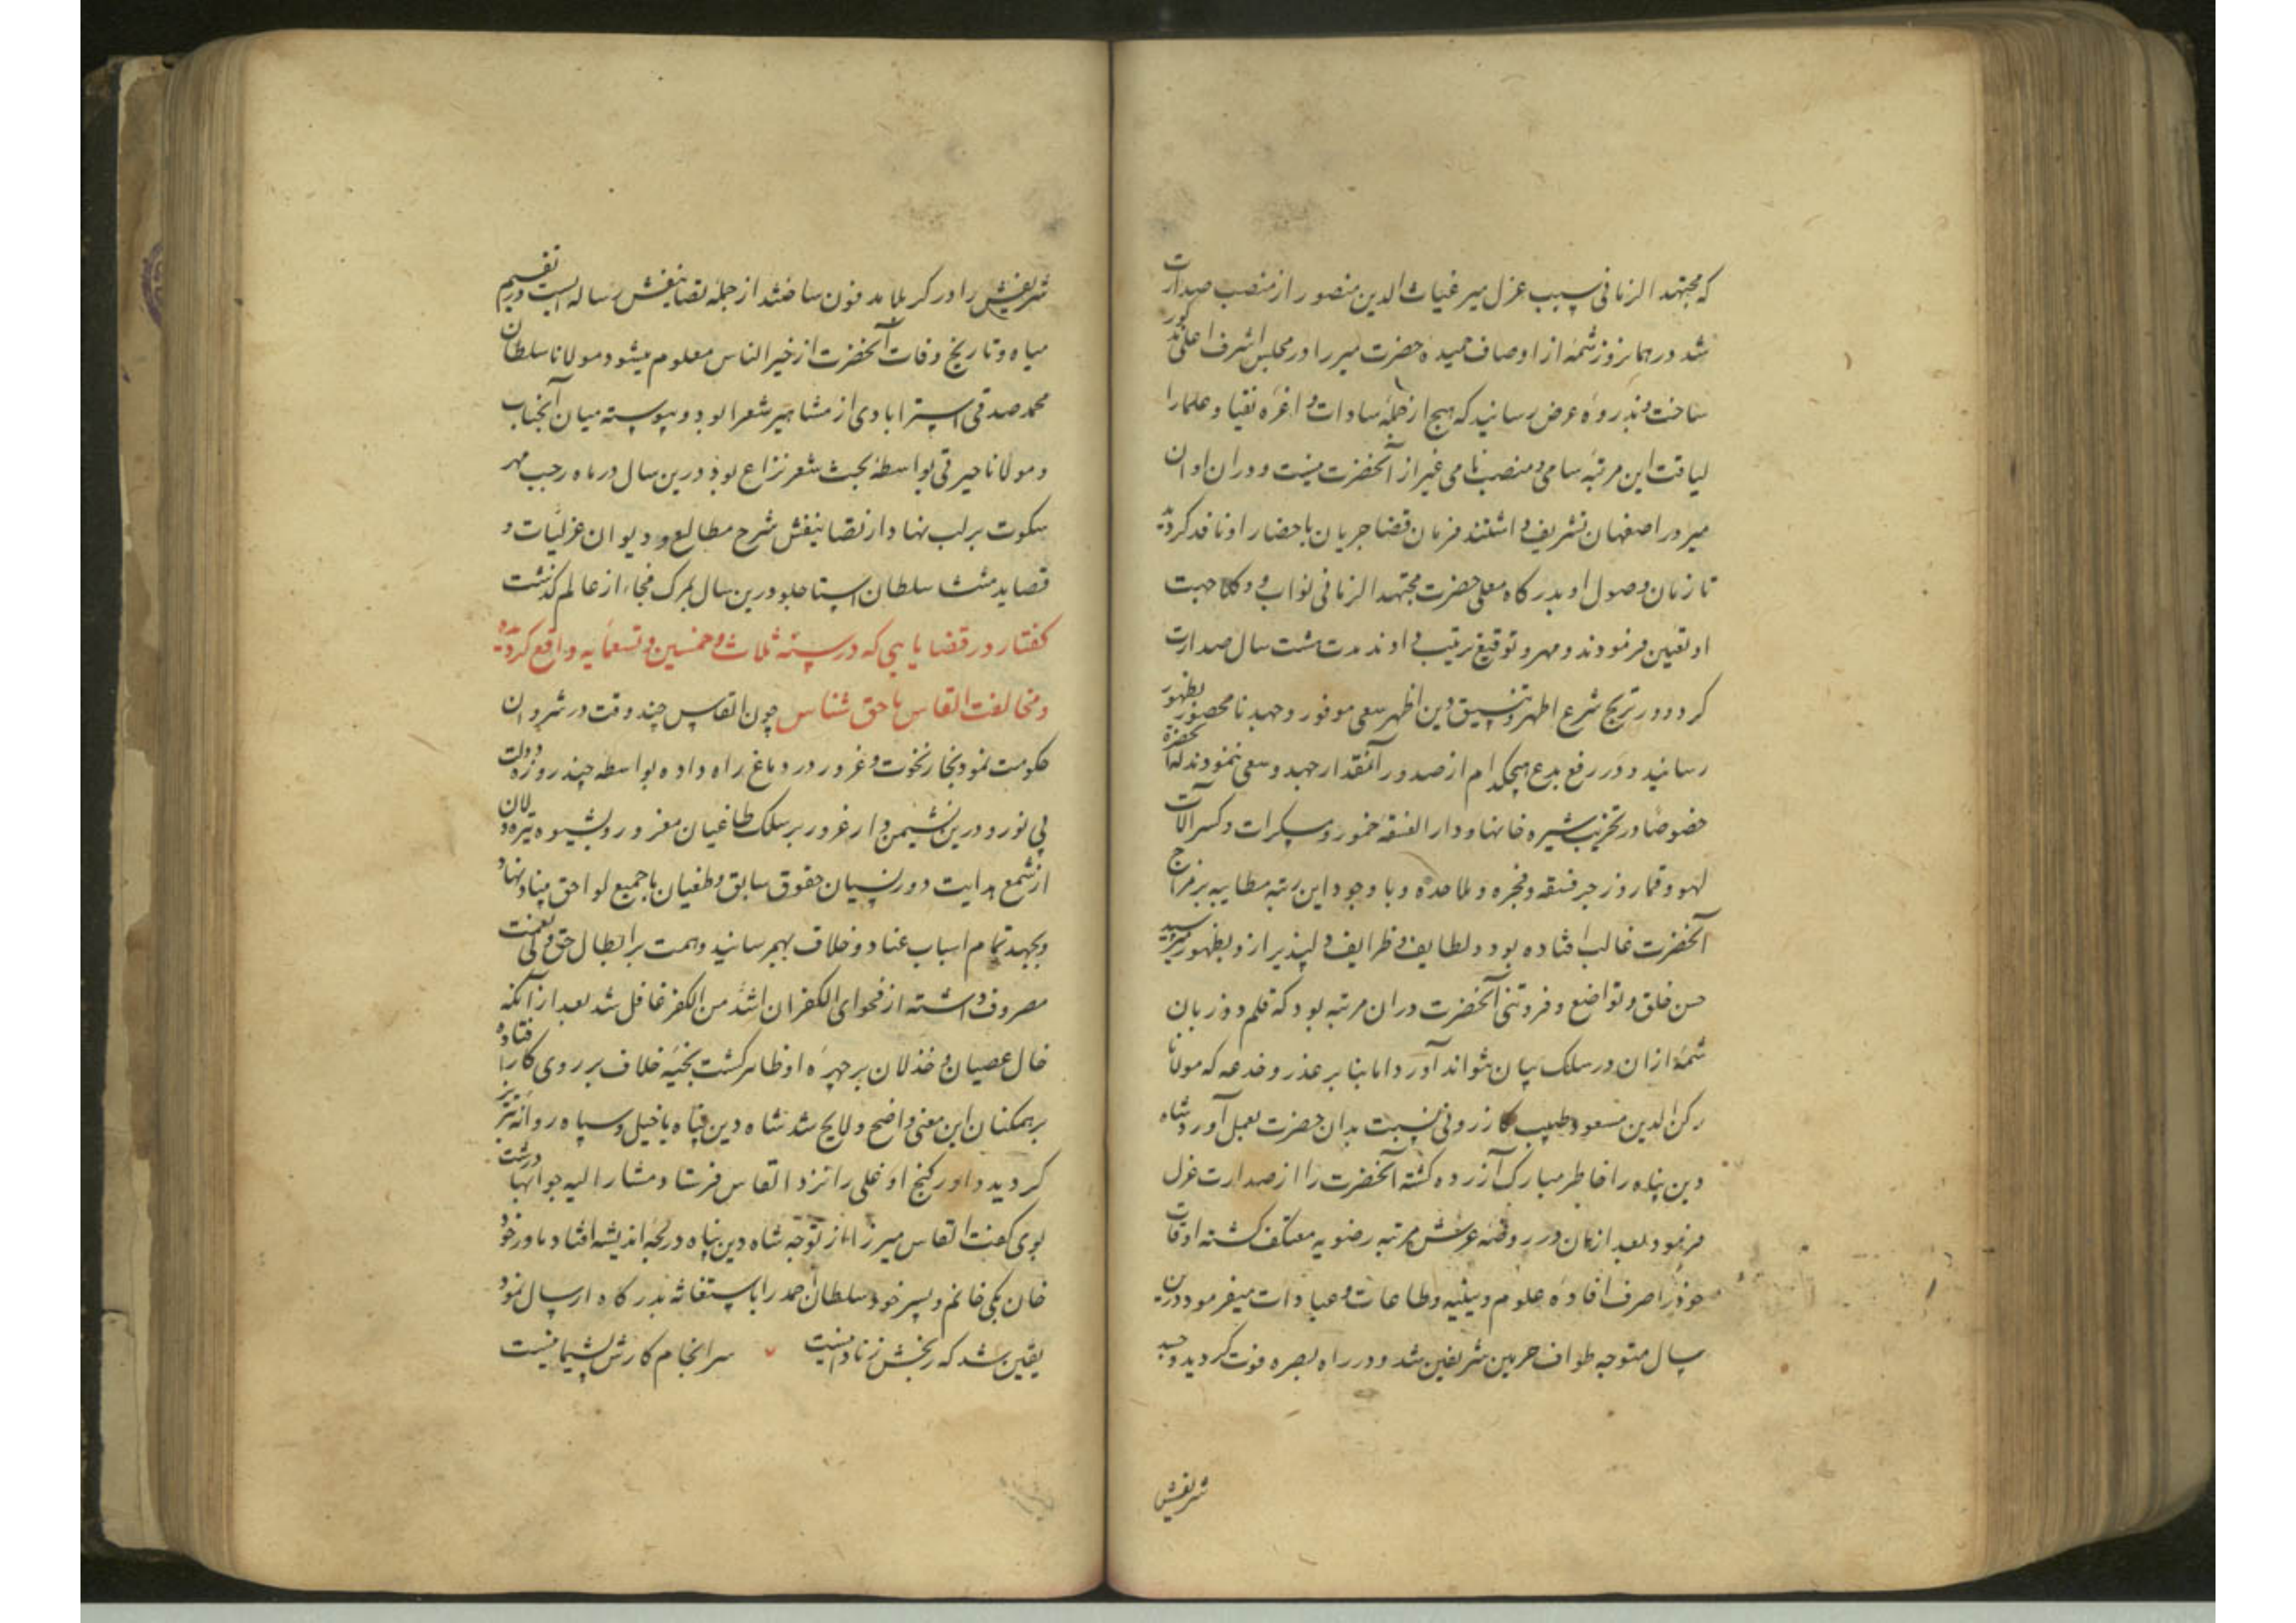 که مجتهد الزمانی سبب عزل میر غیاث الدین منصور از منصب صدارت
شد در همانروز شمهٔ از اوصاف حمیده حضرت میر را در مجلس اشرف اعلی مذکور
ساخت و بذروهٔ عرض رسانید که هیچ از جملهٔ سادات و اعزه نقبا و علما را
لیاقت این مرتبهٔ سامی و منصب نامی غیر از آنحضرت نیست و در ان اوان
میر در اصفهان تشریف داشتند فرمان قضا جریان باحضار او نافذ کردید
تا زمان وصول او بدرکاه معلی حضرت مجتهد الزمانی نواب و وکلا جهت
او تعیین فرمودند و مهر و توقیع ترتیب دادند مدت هشت سال صدارت
کرد و در ترویج شرع اطهر و تنسیق دین اظهر سعی موفور و جهد نامحصور بظهور
رسانید و در رفع بدع هیچکدام از صدور آنمقدار جهد و سعی ننمودند که آنحضرة
خصوصا در تخریب شیره خانها و دار الفسقه خمور و مسکرات و کسر آلات
لهو و قمار و زجر فسقه و فجره و ملاحده و با وجود این رتبه مطایبه بر مزاج
آنحضرت غالب افتاده بود و لطایف و ظرایف دلپذیر ازو بظهور میرسید
حسن خلق و تواضع و فروتنی آنحضرت در ان مرتبه بود که قلم دو زبان
شمهٔ از ان در سلک بیان نتواند آورد اما بنا بر غدر و خدعه که مولانا
رکن الدین مسعود طبیب کازرونی نسبت بدان حضرت بعمل آورد شاه
دین پناه را خاطر مبارک آزرده کشته آنحضرت را از صدارت عزل
فرمود بعد از ان در روضه عرش مرتبه رضویه معتکف کشته اوقات
خود را صرف افادهٔ علوم دینیه و طاعات و عبادات میفرمود درین
سال متوجه طواف حرمین شریفین شد و در راه بصره فوت کردید و جسد
شریفش
شریفش را در کربلا مدفون ساختند از جمله تصانیفش رساله ایست در تقسیم
میاه و تاریخ وفات آنحضرت از خیر الناس معلوم میشود مولانا سلطان
محمد صدقی استرابادی از مشاهیر شعرا بود و پیوسته میان آنجناب
و مولانا حیرتی بواسطهٔ بحث شعر نزاع بود درین سال در ماه رجب مهر
سکوت بر لب نهاد از تصانیفش شرح مطالع و دیوان غزلیات و
قصاید منتشا سلطان استاجلو درین سال بمرک فجاء از عالم کذشت
کفتار در قضایایی که در سنه ثلاث و خمسین و تسعمایه واقع کردیده
و مخالفت القاس ناحق شناس چون القاس چند وقت در شروان
حکومت نمود بخار نخوت و غرور در دماغ راه داده بواسطه چند روزه دولت
بی نور و درین نشیمن دار غرور بر سلک طاغیان مغرور و بشیوه تیره دلان
از شمع هدایت دور نسیان حقوق سابق و طغیان با جمیع لواحق بنیاد نهاد
و بجهد تمام اسباب عناد و خلاف بهم رسانید و همت بر ابطال حق ولی نعمت
مصروف داشته از فحوای الکفران اشد من الکفر غافل شد بعد از آنکه
خال عصیان و خذلان بر چهرهٔ او ظاهر کشت بخیهٔ خلاف بر روی کار افتاده
بر همکنان این معنی واضح و لایح شد شاه دین پناه با خیل و سپاه روانه تبریز
کردید و اور کنج اوغلی را نزد القاس فرستاد مشار الیه جوابهای درشت
بوی کفت القاس میرزا از توجه شاه دین پناه در لجهٔ اندیشه افتاد مادر خود
خان بکی خانم و پسر خود سلطان احمد را باستغاثه بدرکاه ارسال نمود
یقین شد که رنجش ز نادانیست سرانجام کارش پشیمانیست